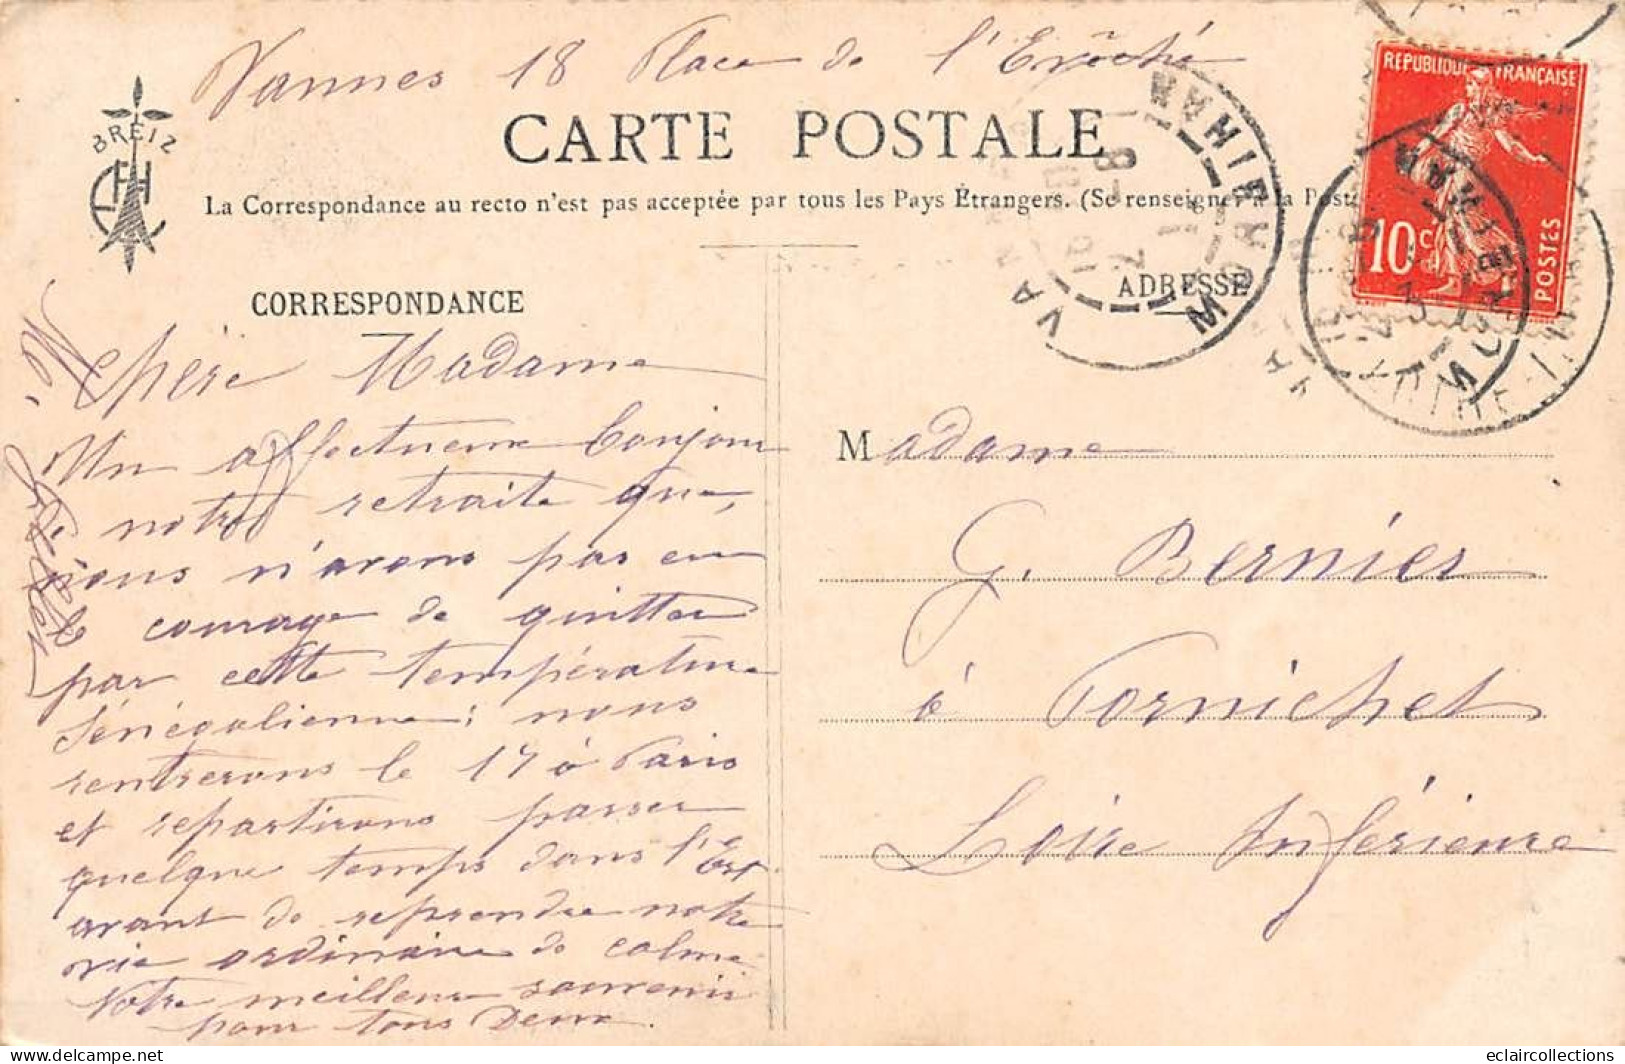 Vannes 18 Place de l'Evêché
BREIZ
CARTE POSTALE
La Correspondance au recto n'est pas acceptée par tous les Pays Étrangers. (Se renseigner à la Poste
REPUBLIQUE FRANÇAISE
10c
POSTES
VANNES
MORBIHAN
CORRESPONDANCE
ADRESSE
Madame
Un affectueux bonjour
notre retraite que,
nous n'avons pas eu
courage de quitter
par cette température
Sénégalienne; nous
rentrerons le 17 à Paris
et repartirons passer
quelque temps dans l'Est
avant de reprendre notre
vie ordinaire de calme
Votre meilleur souvenir
pour tous Deux.
Madame
G. Bernier
à Pornichet
Loire Inférieure
eclaircollections